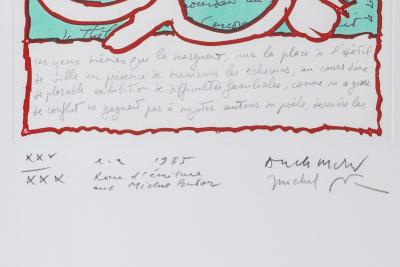 de Thél
Ces yeux mêmes qui la narguent, sur la place de l'Hôtel
de ville en présence de messieurs les échevins, au cours d'une
déplorable exhibition de difficultés familiales, comme si ce genre
de conflit ne gagnait pas à mijoter autour du poêle, derrière les
XXV e.a 1985 Alechinsky
XXX Roue d'écriture Michel
avec Michel Butor